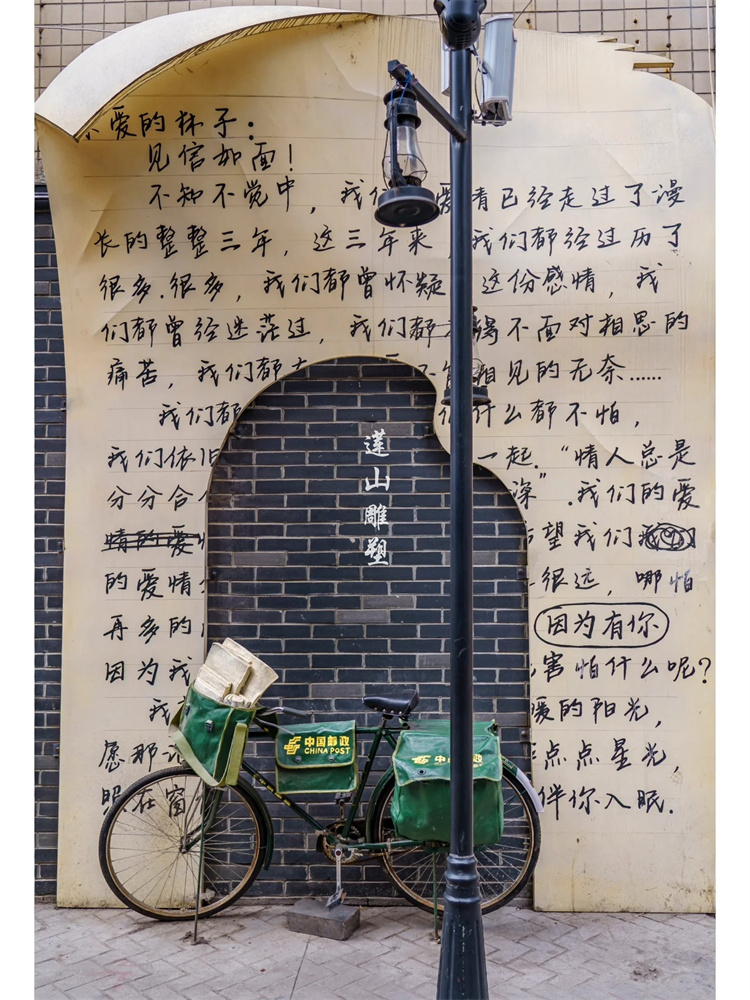 爱的林子：
见信如面！
不知不觉中，我们 爱情已经走过了漫
长的整整三年，这三年来，我们都经过历了
很多.很多，我们都曾怀疑 这份感情，我
们都曾经迷茫过，我们都 不面对相思的
痛苦，我们都 相见的无奈……
我们都 什么都不怕，
我们依旧 一起.“情人总是
分分合合 深”.我们的爱
情的爱情 希望我们
的爱情 很远，哪怕
再多的 因为有你
因为我 害怕什么呢？
我 暖的阳光，
愿那 点点星光，
照在窗 伴你入眠.
莲山雕塑
中国邮政
CHINA POST
中国邮